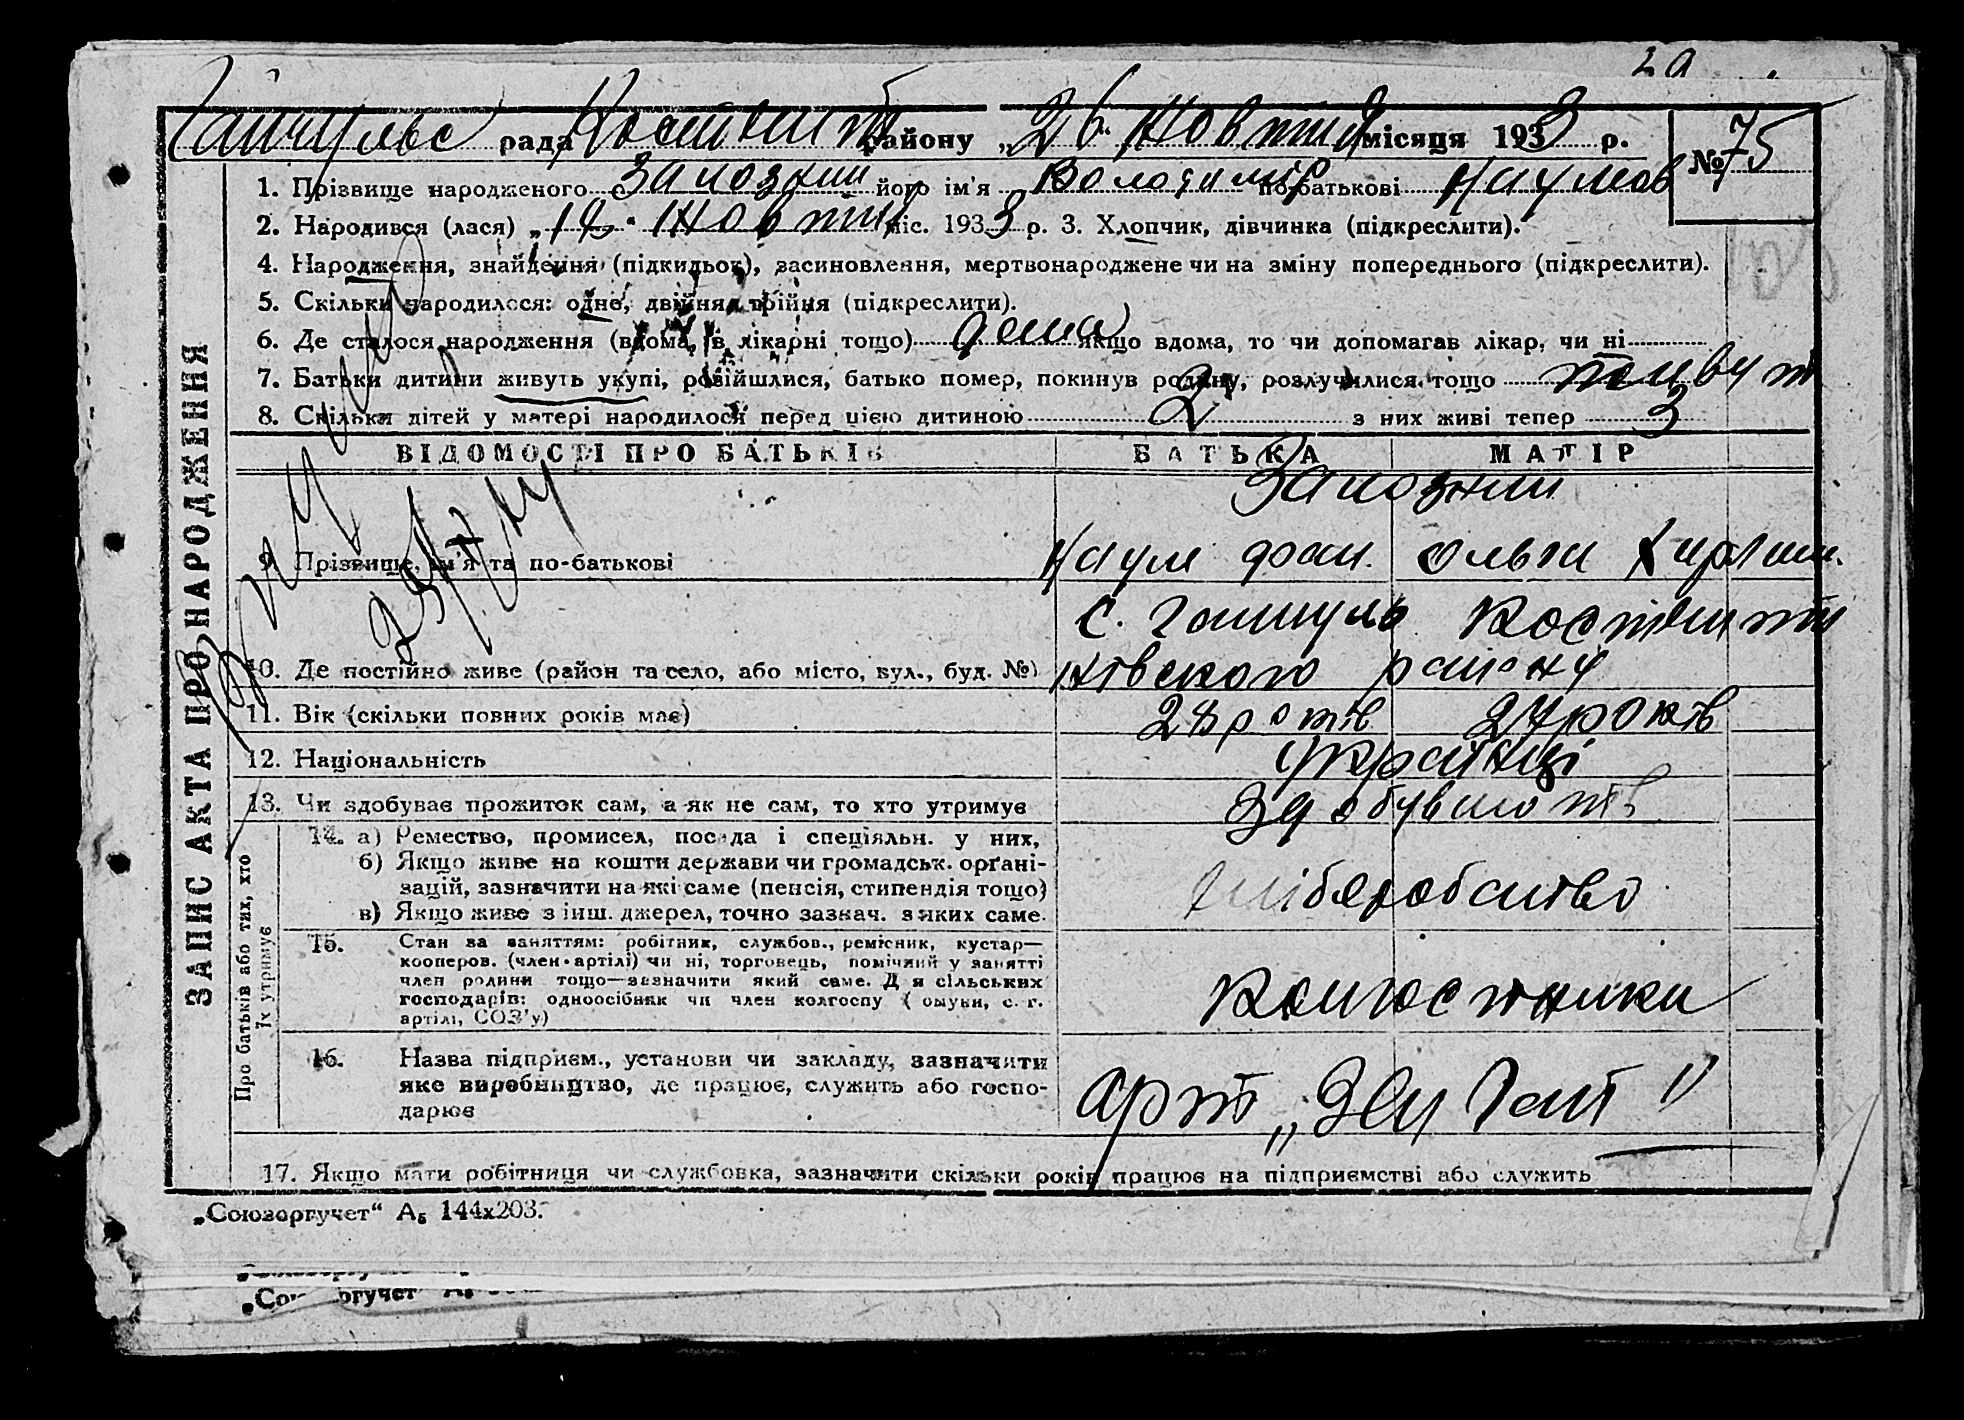 2а
Гайчульс рада Костянт району „26“ жовтня місяця 1933 р.
№ 75
1. Прізвище народженого Залозний його ім'я Володимір по-батькові Наумов
2. Народився (лася) „14“ жовтня міс. 1933 р. 3. Хлопчик, дівчинка (підкреслити).
4. Народження, знайдення (підкидьок), засиновлення, мертвонароджене чи на зміну попереднього (підкреслити).
5. Скільки народилося: одне, двійня, трійня (підкреслити).
6. Де сталося народження (вдома, в лікарні тощо) дома якщо вдома, то чи допомагав лікар, чи ні
7. Батьки дитини живуть укупі, розійшлися, батько помер, покинув родину, розлучилися тощо
8. Скільки дітей у матері народилося перед цією дитиною 2 з них живі тепер 3
ЗАПИС АКТА ПРО НАРОДЖЕННЯ
ВІДОМОСТІ ПРО БАТЬКІВ БАТЬКА МАТІР
Залозний
9. Прізвище, ім'я та по-батькові Наум Ольга
с. Гайчуль
10. Де постійно живе (район та село, або місто, вул., буд. №) району
11. Вік (скільки повних років має) 28 років 27 років
12. Національність Українці
13. Чи здобував прожиток сам, а як не сам, то хто утримує
Про батьків або тих, хто їх утримує
14. а) Ремество, промисел, посада і спеціяльн. у них,
б) Якщо живе на кошти держави чи громадськ. орґані-
зацій, зазначити на які саме (пенсія, стипендія тощо)
в) Якщо живе з інш. джерел, точно зазнач. з яких саме.
хліборобство
15. Стан за заняттям: робітник, службов., ремісник, кустар—
кооперов. (член артілі) чи ні, торговець, помічний у занятті
член родини тощо—зазначити який саме. Для сільських
господарів: одноосібник чи член колгоспу (комуни, с. г.
артілі, СОЗ'у)
Колгоспники
16. Назва підприєм., установи чи закладу, зазначити
яке виробництво, де працює, служить або госпо-
дарює
17. Якщо мати робітниця чи службовка, зазначити скільки років працює на підприємстві або служить
„Союзоргучет“ А₅ 144х203.